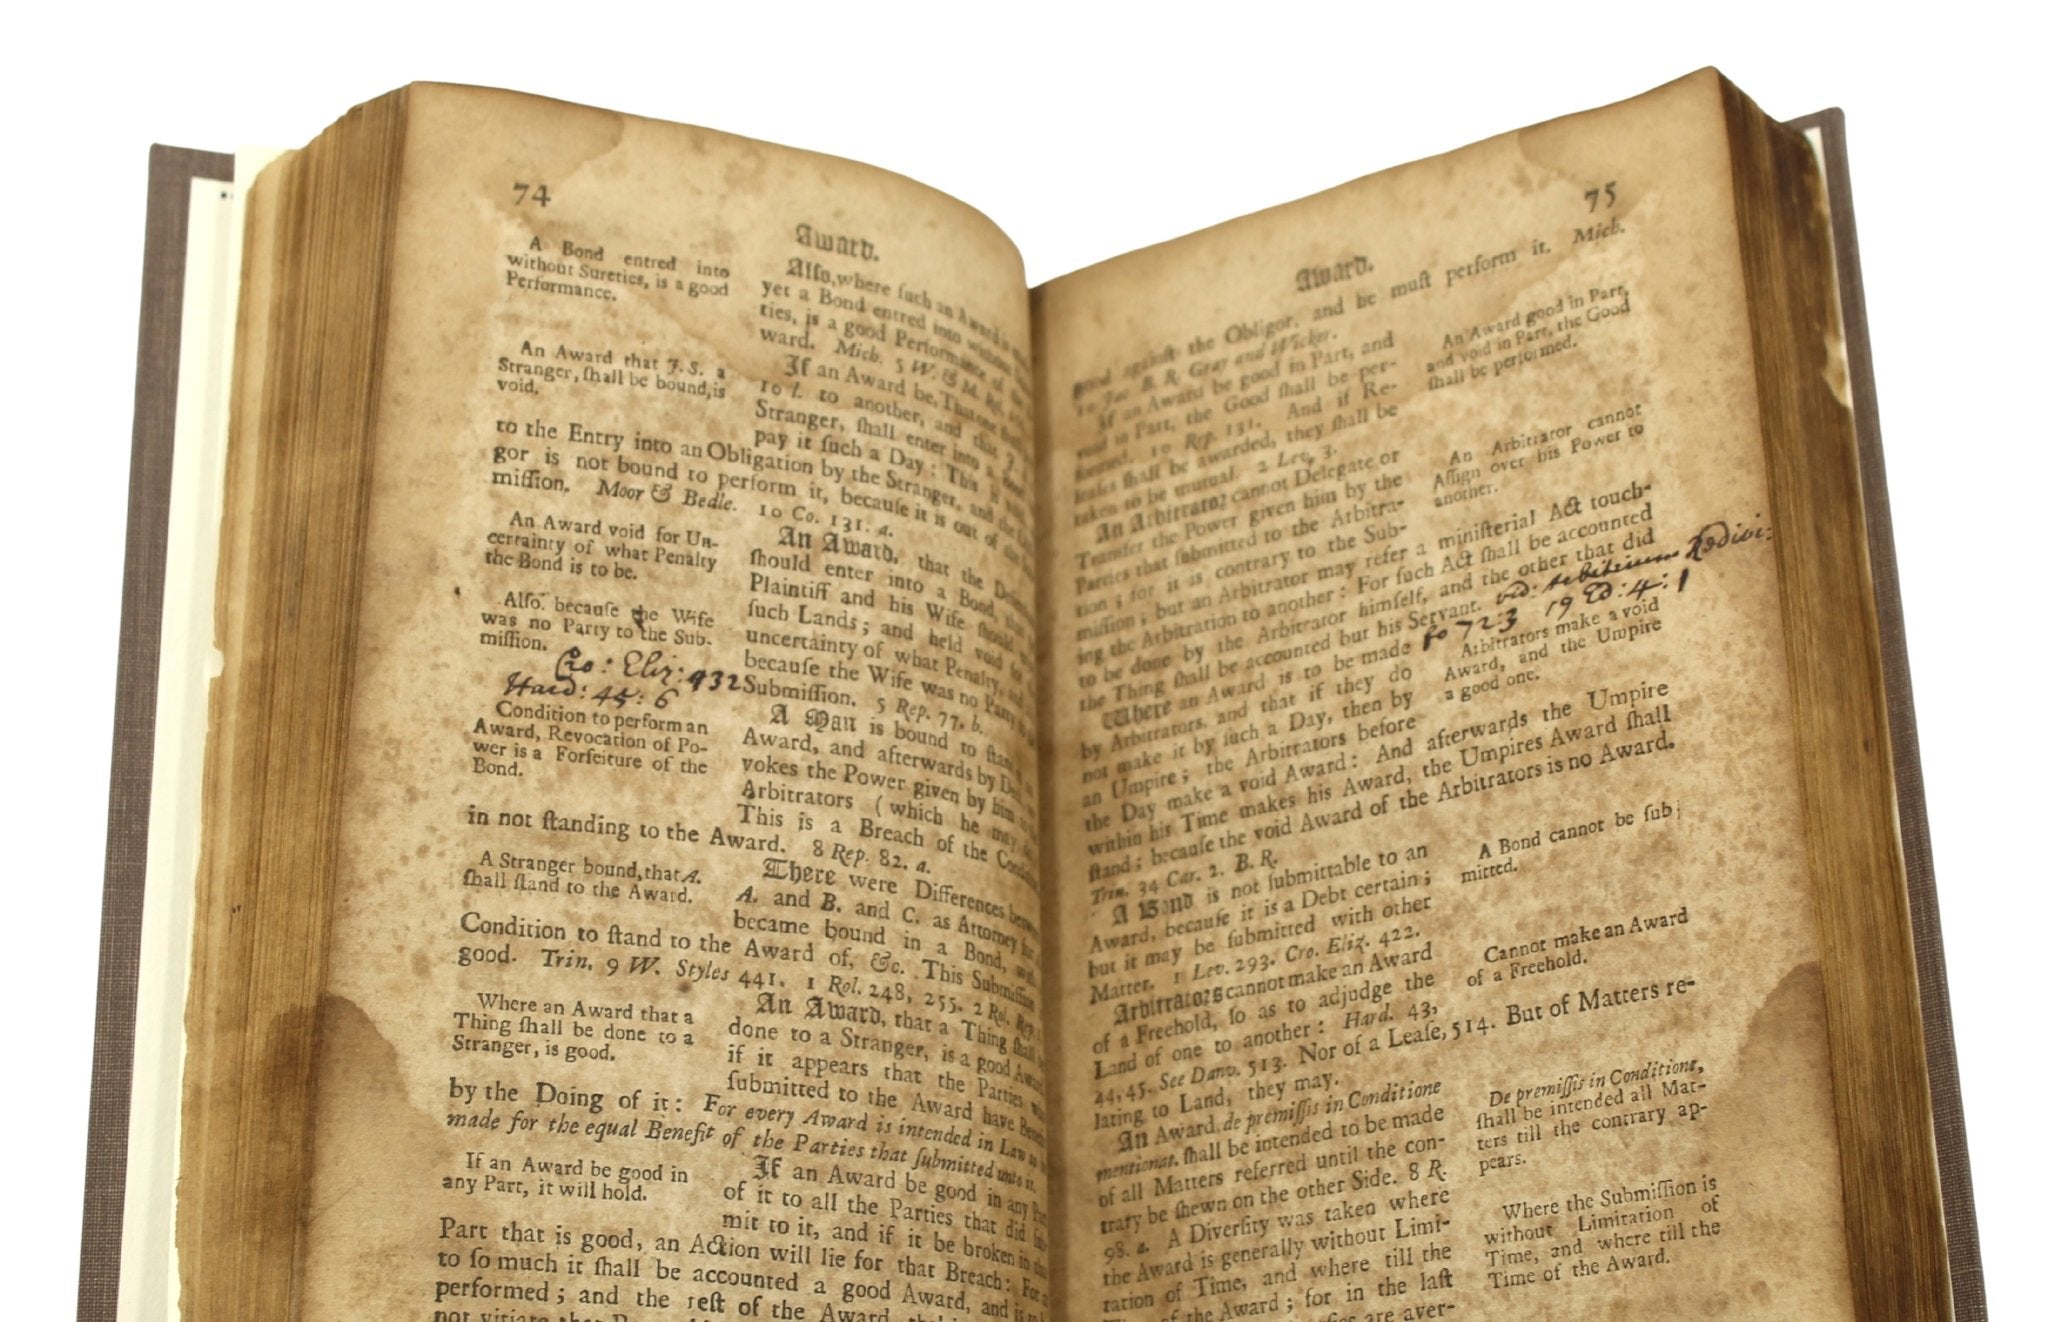 74
Award.
A Bond entred into
without Sureties, is a good
Performance.
Also, where such an Award is
yet a Bond entred into without
ties, is a good Performance of the
ward. Mich. 5 W. & M.
An Award that J. S. a
Stranger, shall be bound, is
void.
If an Award be, That one shall
10 l. to another, and that J.
Stranger, shall enter into a
pay it such a Day: This is
to the Entry into an Obligation by the Stranger, and the
gor is not bound to perform it, because it is out of the
mission. Moor & Bedle. 10 Co. 131. a.
An Award void for Un-
certainty of what Penalty
the Bond is to be.
Also, because the Wife
was no Party to the Sub-
mission.
Cro: Eliz: 432
Hard: 45: 6
An Award, that the
should enter into a Bond,
Plaintiff and his Wife should
such Lands; and held void for
uncertainty of what Penalty, and
because the Wife was no Party
Submission. 5 Rep. 77. b.
Condition to perform an
Award, Revocation of Po-
wer is a Forfeiture of the
Bond.
A Man is bound to stand
Award, and afterwards by
vokes the Power given by him
Arbitrators (which he may
This is a Breach of the
in not standing to the Award. 8 Rep. 82. a.
A Stranger bound, that A.
shall stand to the Award.
There were Differences
A. and B. and C. as Attorney for
became bound in a Bond, with
Condition to stand to the Award of, &c. This Submission
good. Trin. 9 W. Styles 441. 1 Rol. 248, 255. 2 Rol. Rep.
Where an Award that a
Thing shall be done to a
Stranger, is good.
An Award, that a Thing shall
done to a Stranger, is a good
if it appears that the Parties
submitted to the Award have
by the Doing of it: For every Award is intended in Law to
made for the equal Benefit of the Parties that submitted unto it.
If an Award be good in
any Part, it will hold.
If an Award be good in any
of it to all the Parties that did
mit to it, and if it be broken in
Part that is good, an Action will lie for that Breach: For
to so much it shall be accounted a good Award, and
performed; and the rest of the Award,
not vitiate that
75
Award.
good against the Obligor, and he must perform it. Mich.
10 Jac. B. R. Gray and Wicker.
An Award good in Part,
and void in Part, the Good
shall be performed.
If an Award be good in Part, and
void in Part, the Good shall be per-
formed. 10 Rep. 131. And if Re-
leases shall be awarded, they shall be
taken to be mutual. 2 Lev. 3.
An Arbitrator cannot
Assign over his Power to
another.
An Arbitrator cannot Delegate or
Transfer the Power given him by the
Parties that submitted to the Arbitra-
tion; for it is contrary to the Sub-
mission; but an Arbitrator may refer a ministerial Act touch-
ing the Arbitration to another: For such Act shall be accounted
to be done by the Arbitrator himself, and the other that did
the Thing shall be accounted but his Servant. vid: Arbitrium Redivi:
fo 72:3 19 Ed: 4: 1
Arbitrators make a void
Award, and the Umpire
a good one.
Where an Award is to be made
by Arbitrators, and that if they do
not make it by such a Day, then by
an Umpire; the Arbitrators before
the Day make a void Award: And afterwards the Umpire
within his Time makes his Award, the Umpires Award shall
stand; because the void Award of the Arbitrators is no Award.
Trin. 34 Car. 2. B. R.
A Bond cannot be sub-
mitted.
A Bond is not submittable to an
Award, because it is a Debt certain;
but it may be submitted with other
Matter. 1 Lev. 293. Cro. Eliz. 422.
Cannot make an Award
of a Freehold.
Arbitrators cannot make an Award
of a Freehold, so as to adjudge the
Land of one to another: Hard. 43,
44, 45. See Danv. 513. Nor of a Lease, 514. But of Matters re-
lating to Land, they may.
De premissis in Conditione,
shall be intended all Mat-
ters till the contrary ap-
pears.
An Award, de premissis in Conditione
mentionat. shall be intended to be made
of all Matters referred until the con-
trary be shewn on the other Side. 8 R.
98. a. A Diversity was taken where
Where the Submission is
without Limitation of
Time, and where till the
Time of the Award.
the Award is generally without Limi-
tation of Time, and where till the
of the Award; for in the last
are aver-